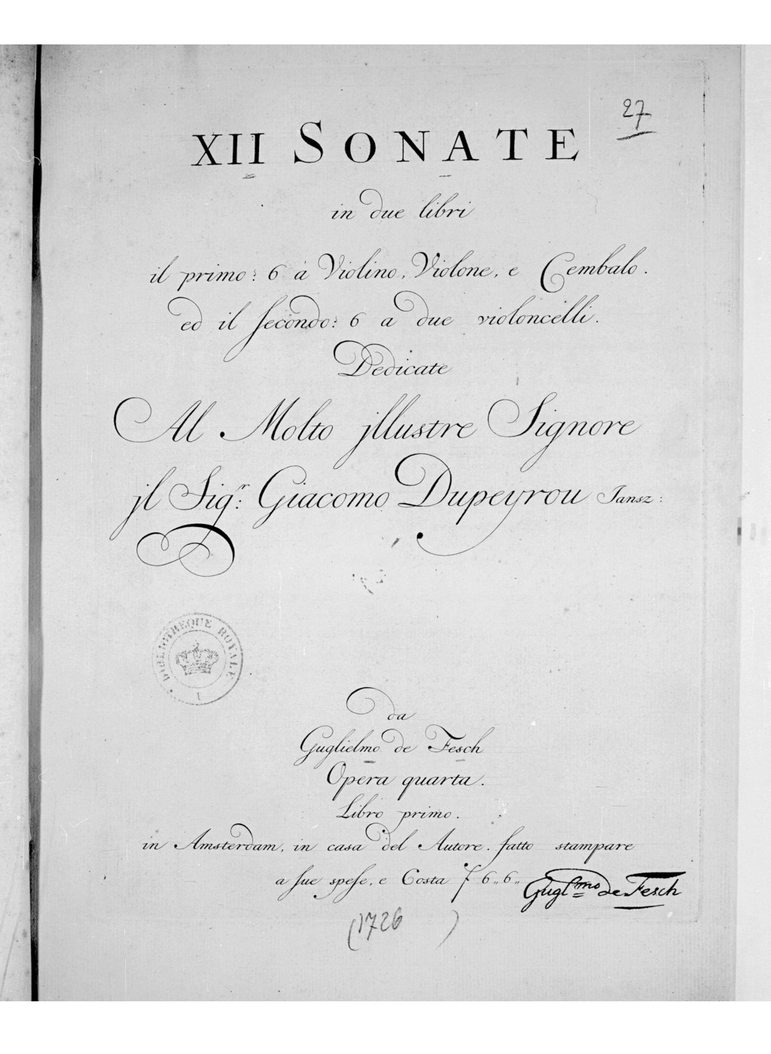 27
XII SONATE
in due libri
il primo: 6 à Violino, Violone, e Cembalo.
ed il secondo: 6 a due violoncelli.
Dedicate
Al Molto jllustre Signore
jl Sigr: Giacomo Dupeyrou Jansz:
BIBLIOTHEQUE ROYALE
I
da
Guglielmo de Fesch
Opera quarta.
Libro primo.
in Amsterdam, in casa del Autore. fatto stampare
a sue spese, e Costa f 6„6„ Gugl:mo de Fesch
(1726 )